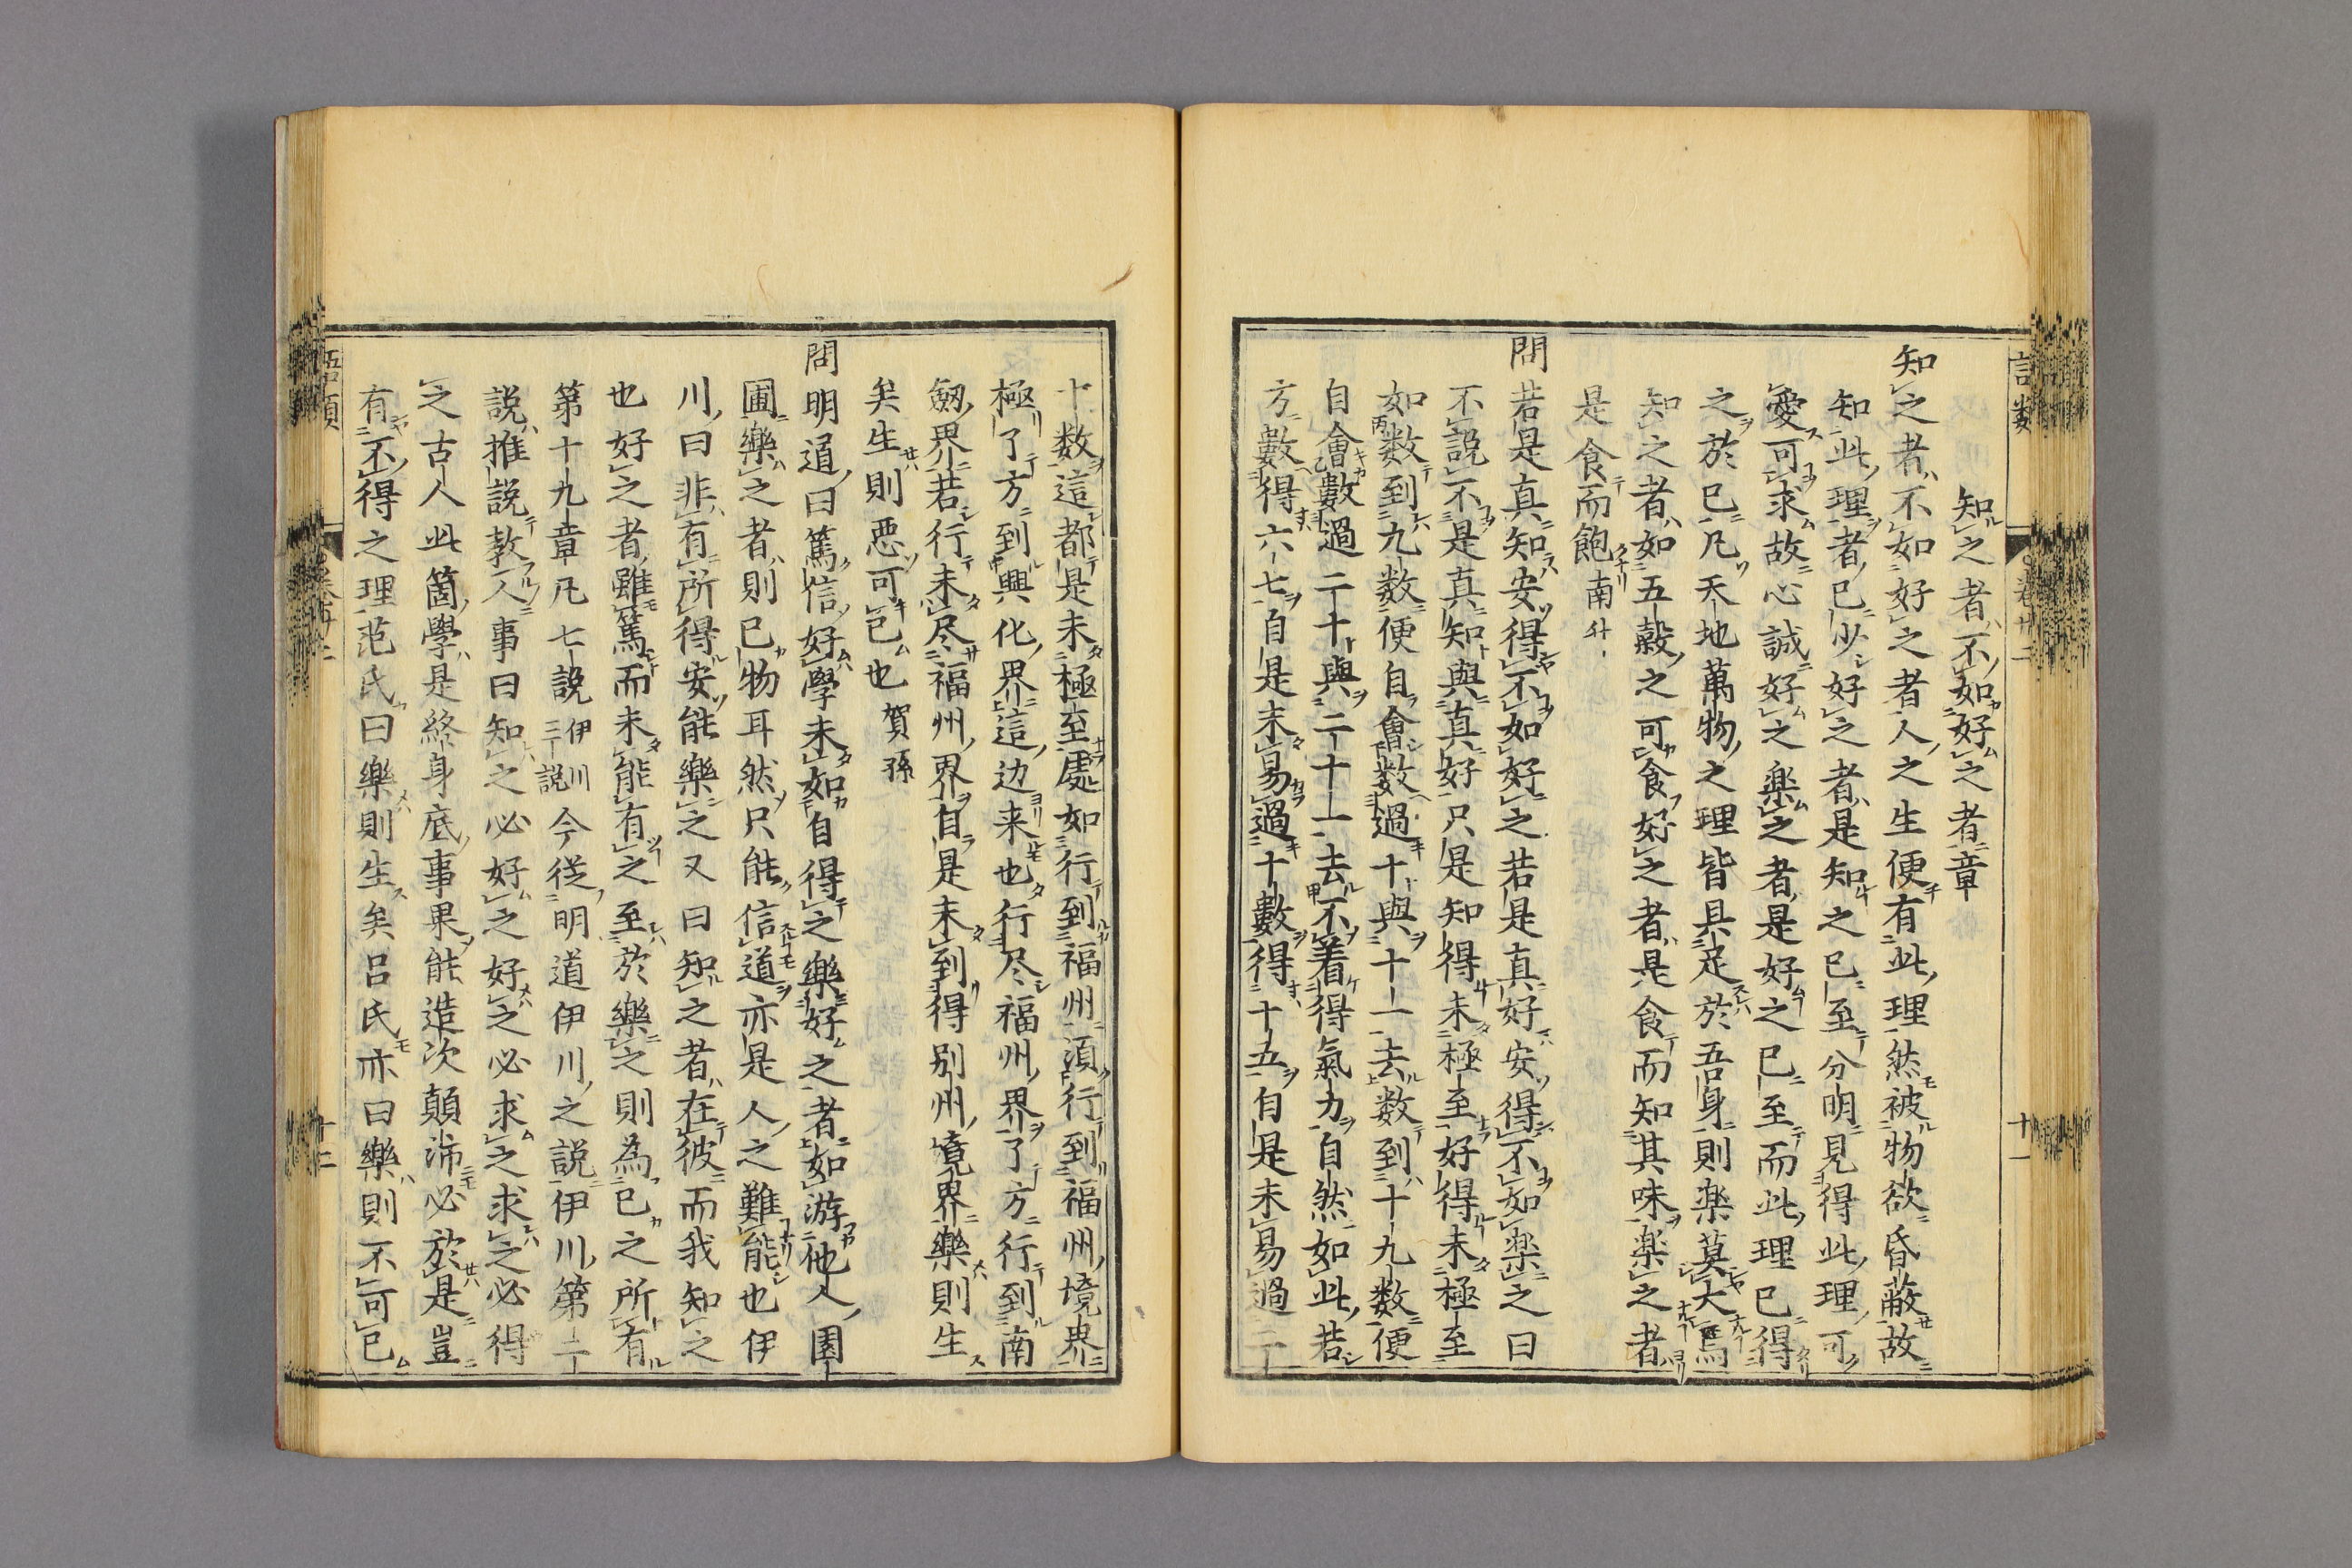 知之者不如好之者章
知之者不如好之者人之生便有此理然被物欲昏蔽故
知此理者已少好之者是知之已至分明見得此理可
愛可求故心誠好之楽之者是好之已至而此理已得
之於已凡天地萬物之理皆具足於吾身則楽莫大焉
知之者如五穀之可食好之者是食而知其味楽之者
是食而飽南升
問若是真知安得不如好之若是真好安得不如楽之曰
不說不是真知與真好只是知得未極至好得未極至
如数到九数便自會数過十與十一去数到十九数便
自會數過二十與二十一去不着得氣力自然如此若
方數得六七自是未易過十數得十五自是未易過二
十数這都是未極至處如行到福州須行到福州境界
極了方到興化界這边来也行尽福州界了方行到南
劔界若行未尽福州界自是未到得別州境界樂則生
矣生則惡可已也賀孫
問明道曰篤信好學未如自得之樂好之者如游他人園
圃樂之者則已物耳然只能信道亦是人之難能也伊
川曰非有所得安能樂之又曰知之者在彼而我知之
也好之者雖篤而未能有之至於樂之則為已之所有
第十九章凡七說伊川三說今従明道伊川之說伊川第二
說推說教人事曰知之必好之好之必求之求之必得
之古人此箇學是終身底事果能造次顛沛必於是豈
有不得之理范氏曰樂則生矣呂氏亦曰樂則不可已
語類
卷卅二
十一
語類
十二